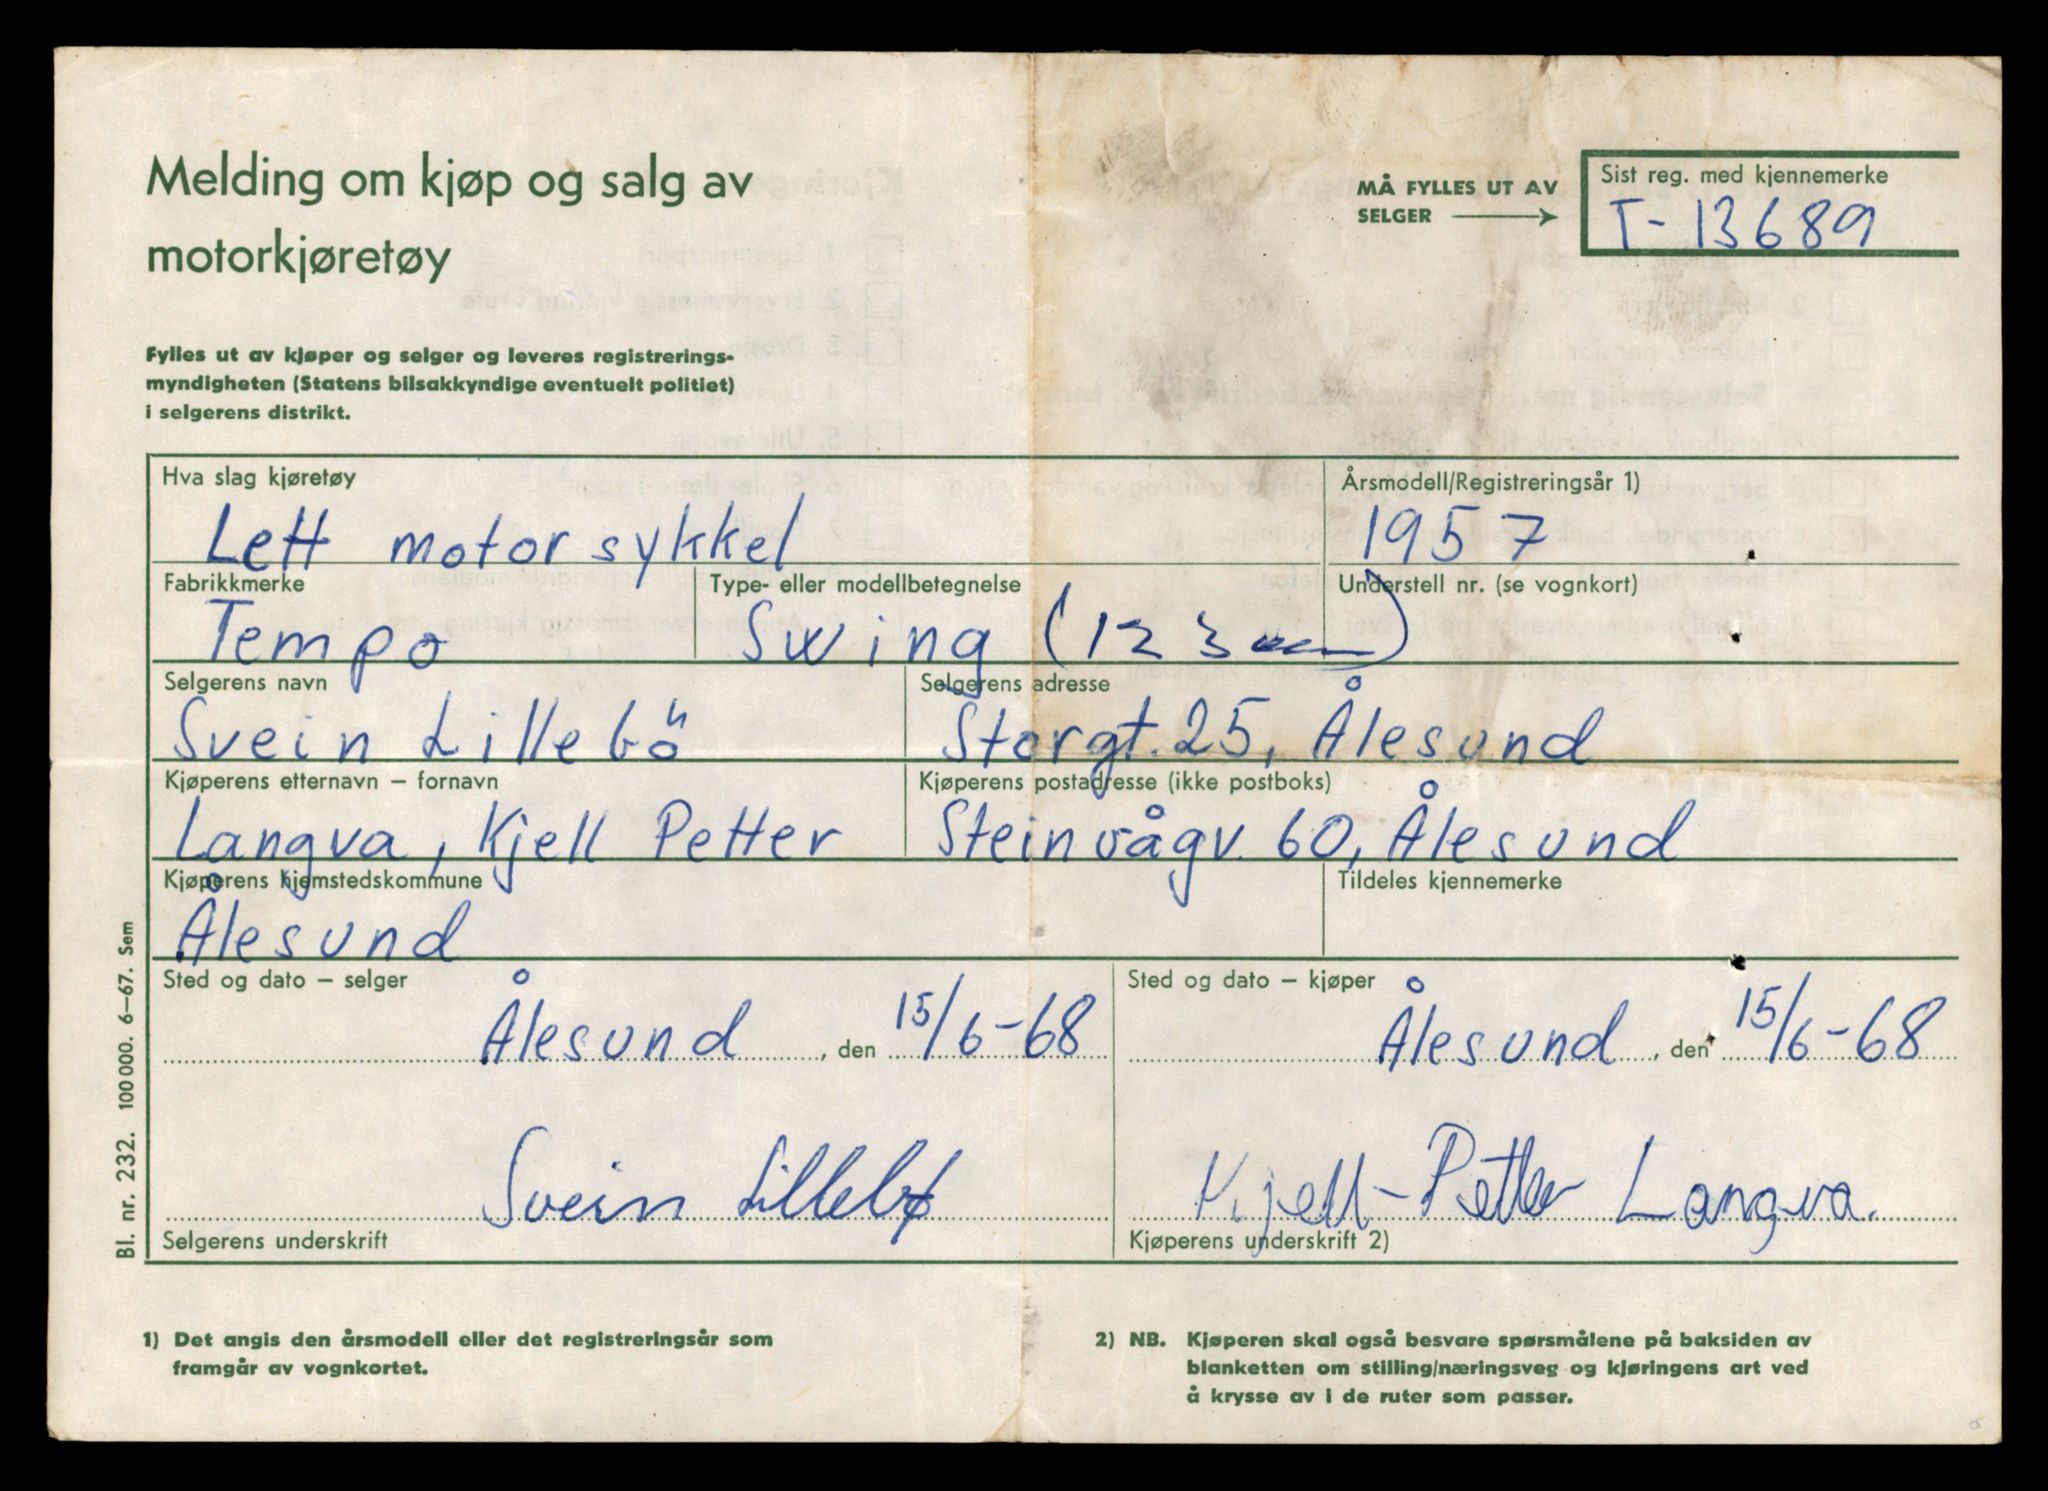 Melding om kjøp og salg av
motorkjøretøy
MÅ FYLLES UT AV
SELGER
Sist reg. med kjennemerke
T-13689
Fylles ut av kjøper og selger og leveres registrerings-
myndigheten (Statens bilsakkyndige eventuelt politiet)
i selgerens distrikt.
Hva slag kjøretøy
Årsmodell/Registreringsår 1)
Lett motorsykkel
1957
Fabrikkmerke
Type- eller modellbetegnelse
Understell nr. (se vognkort)
Tempo
Swing (123
Selgerens navn
Selgerens adresse
Svein Lillebö
Storgt. 25, Ålesund
Kjøperens etternavn – fornavn
Kjøperens postadresse (ikke postboks)
Langva, Kjell Petter
Steinvågv. 60, Ålesund
Kjøperens hjemstedskommune
Tildeles kjennemerke
Ålesund
Sted og dato – selger
Sted og dato – kjøper
Ålesund, den 15/6-68
Ålesund, den 15/6-68
Svein Lillebø
Kjell-Petter Langva.
Selgerens underskrift
Kjøperens underskrift 2)
Bl. nr. 232. 100 000. 6–67. Sem
1) Det angis den årsmodell eller det registreringsår som
framgår av vognkortet.
2) NB. Kjøperen skal også besvare spørsmålene på baksiden av
blanketten om stilling/næringsveg og kjøringens art ved
å krysse av i de ruter som passer.